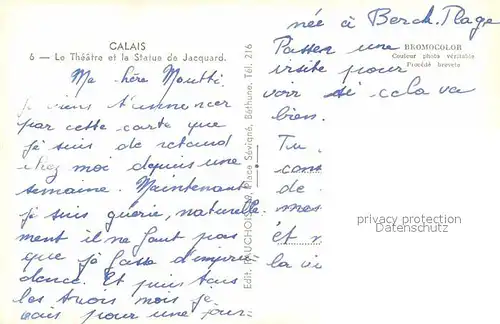 CALAIS
6 — Le Théâtre et la Statue de Jacquard.
Ma chère Moutti
je viens t'annoncer
par cette carte que
je suis de retour
chez moi depuis une
semaine. Maintenant
je suis guérie, naturelle-
ment il ne faut pas
que je fasse d'impru-
dence. Et puis tous
les trois mois je
vais pour une jour-
née à Berck-Plage
Passer une
visite pour
voir si cela va
bien.
Tu
cons
de
mes
et
la vi
BROMOCOLOR
Couleur photo véritable
Procédé breveté
Edit. 9, Place Sévigné, Béthune. Tél. 216
privacy protection
Datenschutz